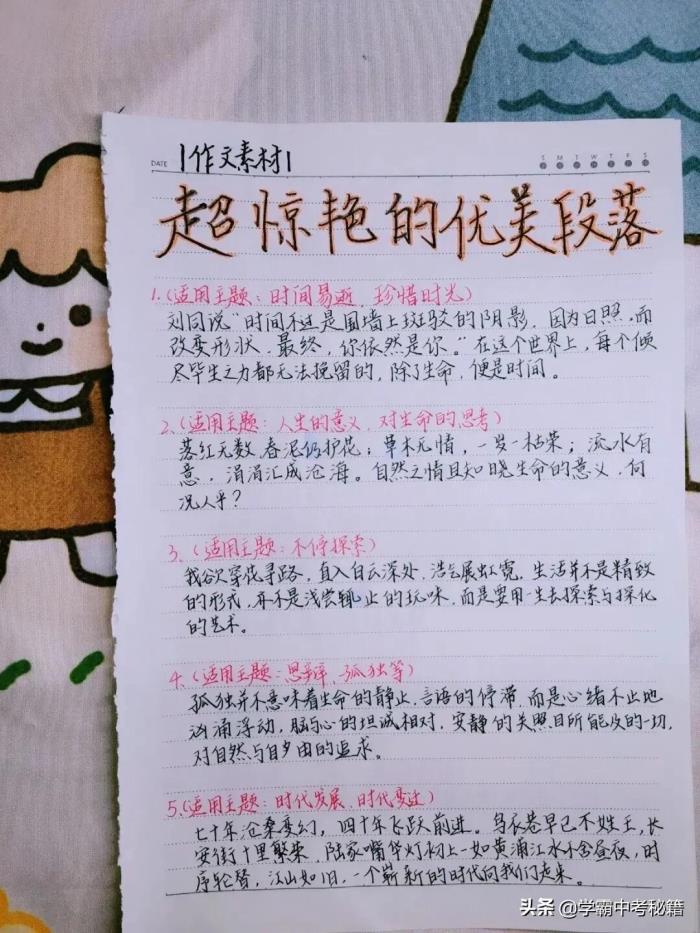 DATE |作文素材|
S M T W T F S
超惊艳的优美段落
1.(适用主题:时间易逝,珍惜时光)
刘同说"时间不过是围墙上斑驳的阴影,因为日照,而
改变形状,最终,你依然是你。"在这个世界上,每个倾
尽毕生之力都无法挽留的,除了生命,便是时间。
2.(适用主题:人生的意义,对生命的思考)
落红无数,春泥仍护花;草木无情,一岁一枯荣;流水有
意,涓涓汇成沧海。自然之情且知晓生命的意义,何
况人乎?
3.(适用主题:不停探索)
我欲穿花寻路,直入白云深处,浩气展虹霓。生活并不是精致
的形式,亦不是浅尝辄止的玩味,而是要用一生去探索与探化
的艺术。
4.(适用主题:思辩、孤独等)
孤独并不意味着生命的静止,言语的停滞,而是心绪不止地
汹涌浮动,脑与心的坦诚相对,安静的关照目所能及的一切,
对自然与自由的追求。
5.(适用主题:时代发展,时代变迁)
七十年沧桑变幻,四十年飞跃前进。乌衣巷早已不姓王,长
安街十里繁荣,陆家嘴华灯初上一如黄浦江水不舍昼夜,时
序轮替,江山如旧,一个崭新的时代向我们走来。
头条 @学霸中考秘籍